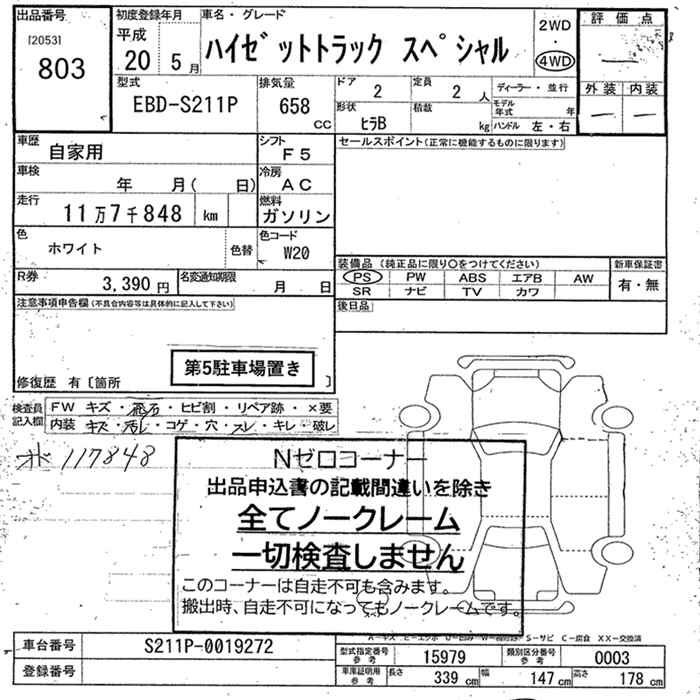 出品番号
[2053]
803
初度登録年月
平成
20 5月
車名・グレード
ハイゼットトラック スペシャル
2WD
・
4WD
評価点
—
外装 内装
— —
型式
EBD-S211P
排気量
658
CC
ドア
2
定員
2 人
形状
ヒラB
積載
kg
ディーラー・並行
モデル年式 年
ハンドル 左・右
車歴
自家用
シフト
F5
車検
年 月( 日)
冷房
AC
走行
11万7千848 km
燃料
ガソリン
色
ホワイト
色替
色コード
W20
R券
3,390円
名変通知期限
月 日
セールスポイント(正常に機能するものに限ります)
装備品 (純正品に限り○をつけてください)
PS PW ABS エアB AW
SR ナビ TV カワ
新車保証書
有・無
後日品
注意事項申告欄(不具合内容等は具体的に記入して下さい)
第5駐車場置き
修復歴 有〔箇所 〕
検査員記入欄
FW キズ・飛石・ヒビ割・リペア跡・×要
内装 キズ・汚レ・コゲ・穴・スレ・キレ・破レ
117848
Nゼロコーナー
出品申込書の記載間違いを除き
全てノークレーム
一切検査しません
このコーナーは自走不可も含みます。
搬出時、自走不可になってもノークレームです。
スペア
A-キズ E-エクボ U-凹み W-補修跡 S-サビ C-腐食 XX-交換済
車台番号
S211P-0019272
登録番号
型式指定番号
参考
15979
類別区分番号
参考
0003
車庫証明用
参考
長さ
339 cm
幅
147 cm
高さ
178 cm